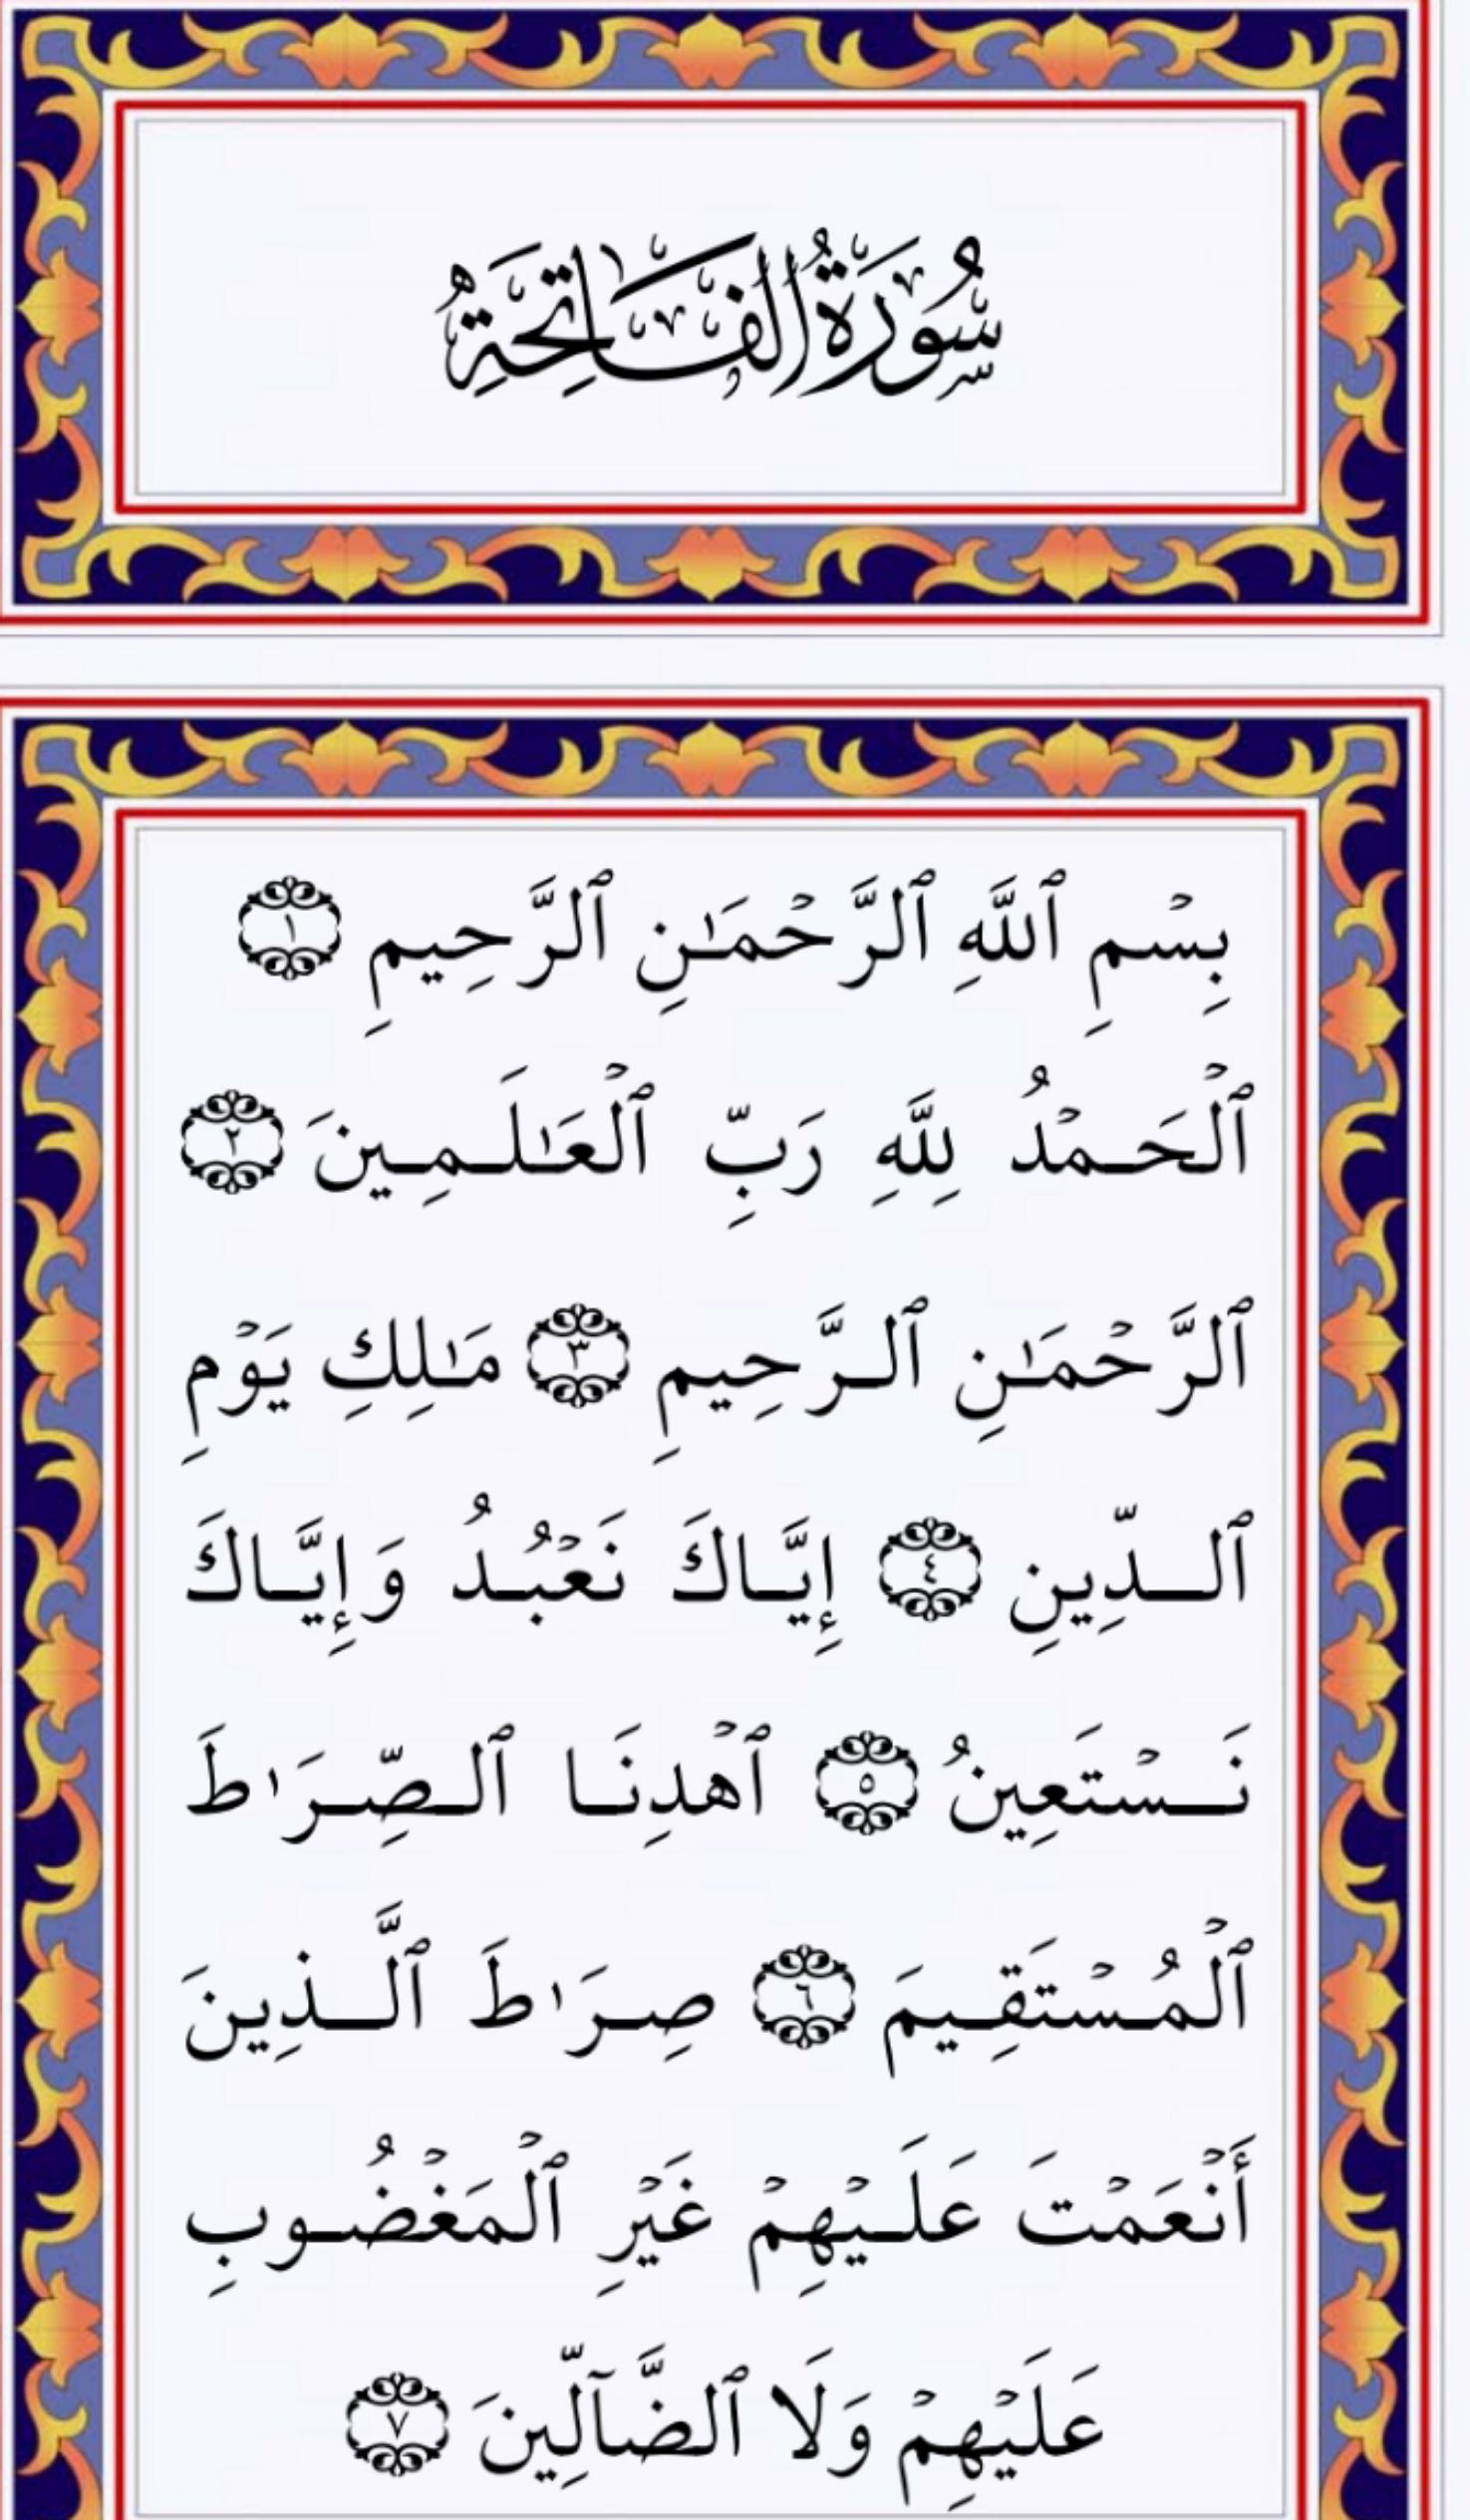 سُورَةُ الفَاتِحَةِ
بِسۡمِ ٱللَّهِ ٱلرَّحۡمَـٰنِ ٱلرَّحِيمِ ١
ٱلۡحَمۡدُ لِلَّهِ رَبِّ ٱلۡعَـٰلَمِينَ ٢
ٱلرَّحۡمَـٰنِ ٱلرَّحِيمِ ٣ مَـٰلِكِ يَوۡمِ
ٱلدِّينِ ٤ إِيَّاكَ نَعۡبُدُ وَإِيَّاكَ
نَسۡتَعِينُ ٥ ٱهۡدِنَا ٱلصِّرَٰطَ
ٱلۡمُسۡتَقِيمَ ٦ صِرَٰطَ ٱلَّذِينَ
أَنۡعَمۡتَ عَلَيۡهِمۡ غَيۡرِ ٱلۡمَغۡضُوبِ
عَلَيۡهِمۡ وَلَا ٱلضَّآلِّينَ ٧